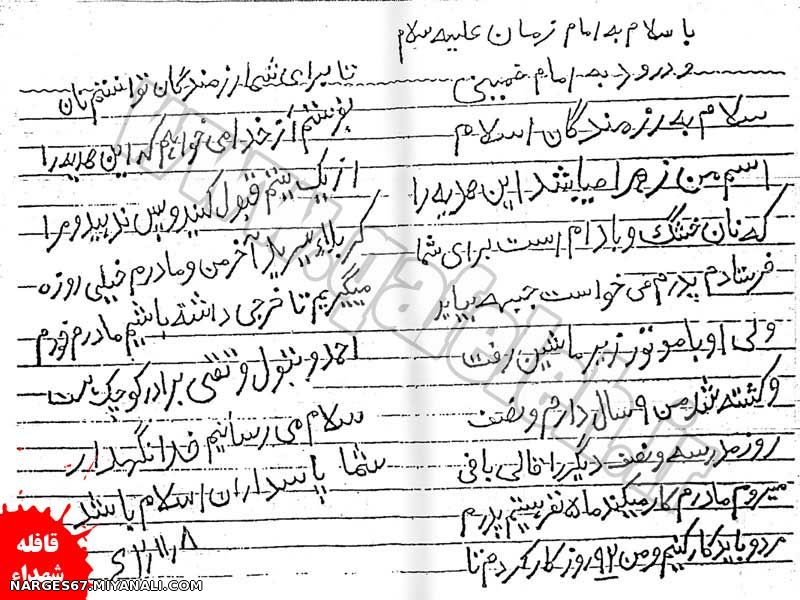 با سلام به امام زمان علیه سلام
و درود به امام خمینی
سلام به رزمندگان اسلام
اسم من زهرا میباشد این هدیه را
که نان خشک و بادام است برای شما
فرستادم پدرم می خواست جبهه بیاید
ولی او با موتور زیر ماشین رفت
و کشته شد من ۹ سال دارم و نصف
روز مدرسه و نصف دیگر را قالی بافی
میروم مادرم کار میکند ما ۵ نفر هستیم پدرم
مرد و باید کار کنیم و من ۹۲ روز کار کردم تا
تا برای شما رزمندگان توانستم نان
بفرستم از خدا می خواهم که این هدیه را
از یک یتیم قبول کنید و پس ندهید و مرا
کربلا ببرید آخر من و مادرم خیلی روزه
میگیریم تا خرجی داشته باشیم مادرم خودم
احمد و بتول و تقی برادر کوچک ست
سلام می رسانیم خدا نگهدار
شما پاسداران اسلام باشد
۶۲٫۱۱٫۸
www.qafeleh.ir
قافله
شهداء
NARGES67.MIYANALI.COM